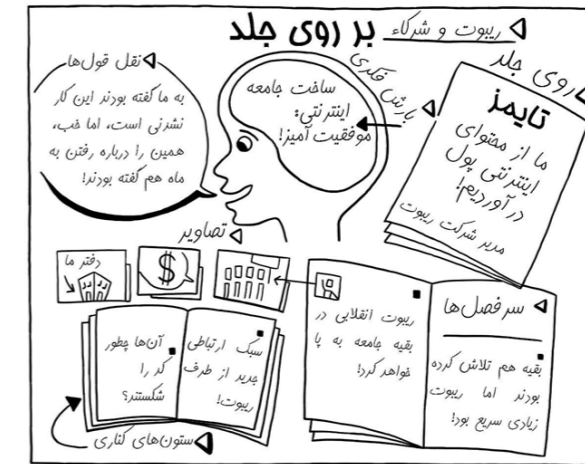 ریبوت و شرکاء بر روی جلد
نقل قول‌ها
به ما گفته بودند این کار
نشدنی است، اما خب،
همین را درباره رفتن به
ماه هم گفته بودند!
بارش فکری
ساخت جامعه
اینترنتی:
موفقیت آمیز!
روی جلد
تایمز
ما از محتوای
اینترنتی پول
در آوردیم!
مدیر شرکت ریبوت
تصاویر
دفتر ما
$
سرفصل‌ها
ریبوت انقلابی در
بقیه جامعه به پا
خواهد کرد!
بقیه هم تلاش کرده
بودند اما ریبوت
زیادی سریع بود!
سبک ارتباطی
جدید از طرف
ریبوت!
آن‌ها چطور
کد را
شکستند؟
ستون‌های کناری